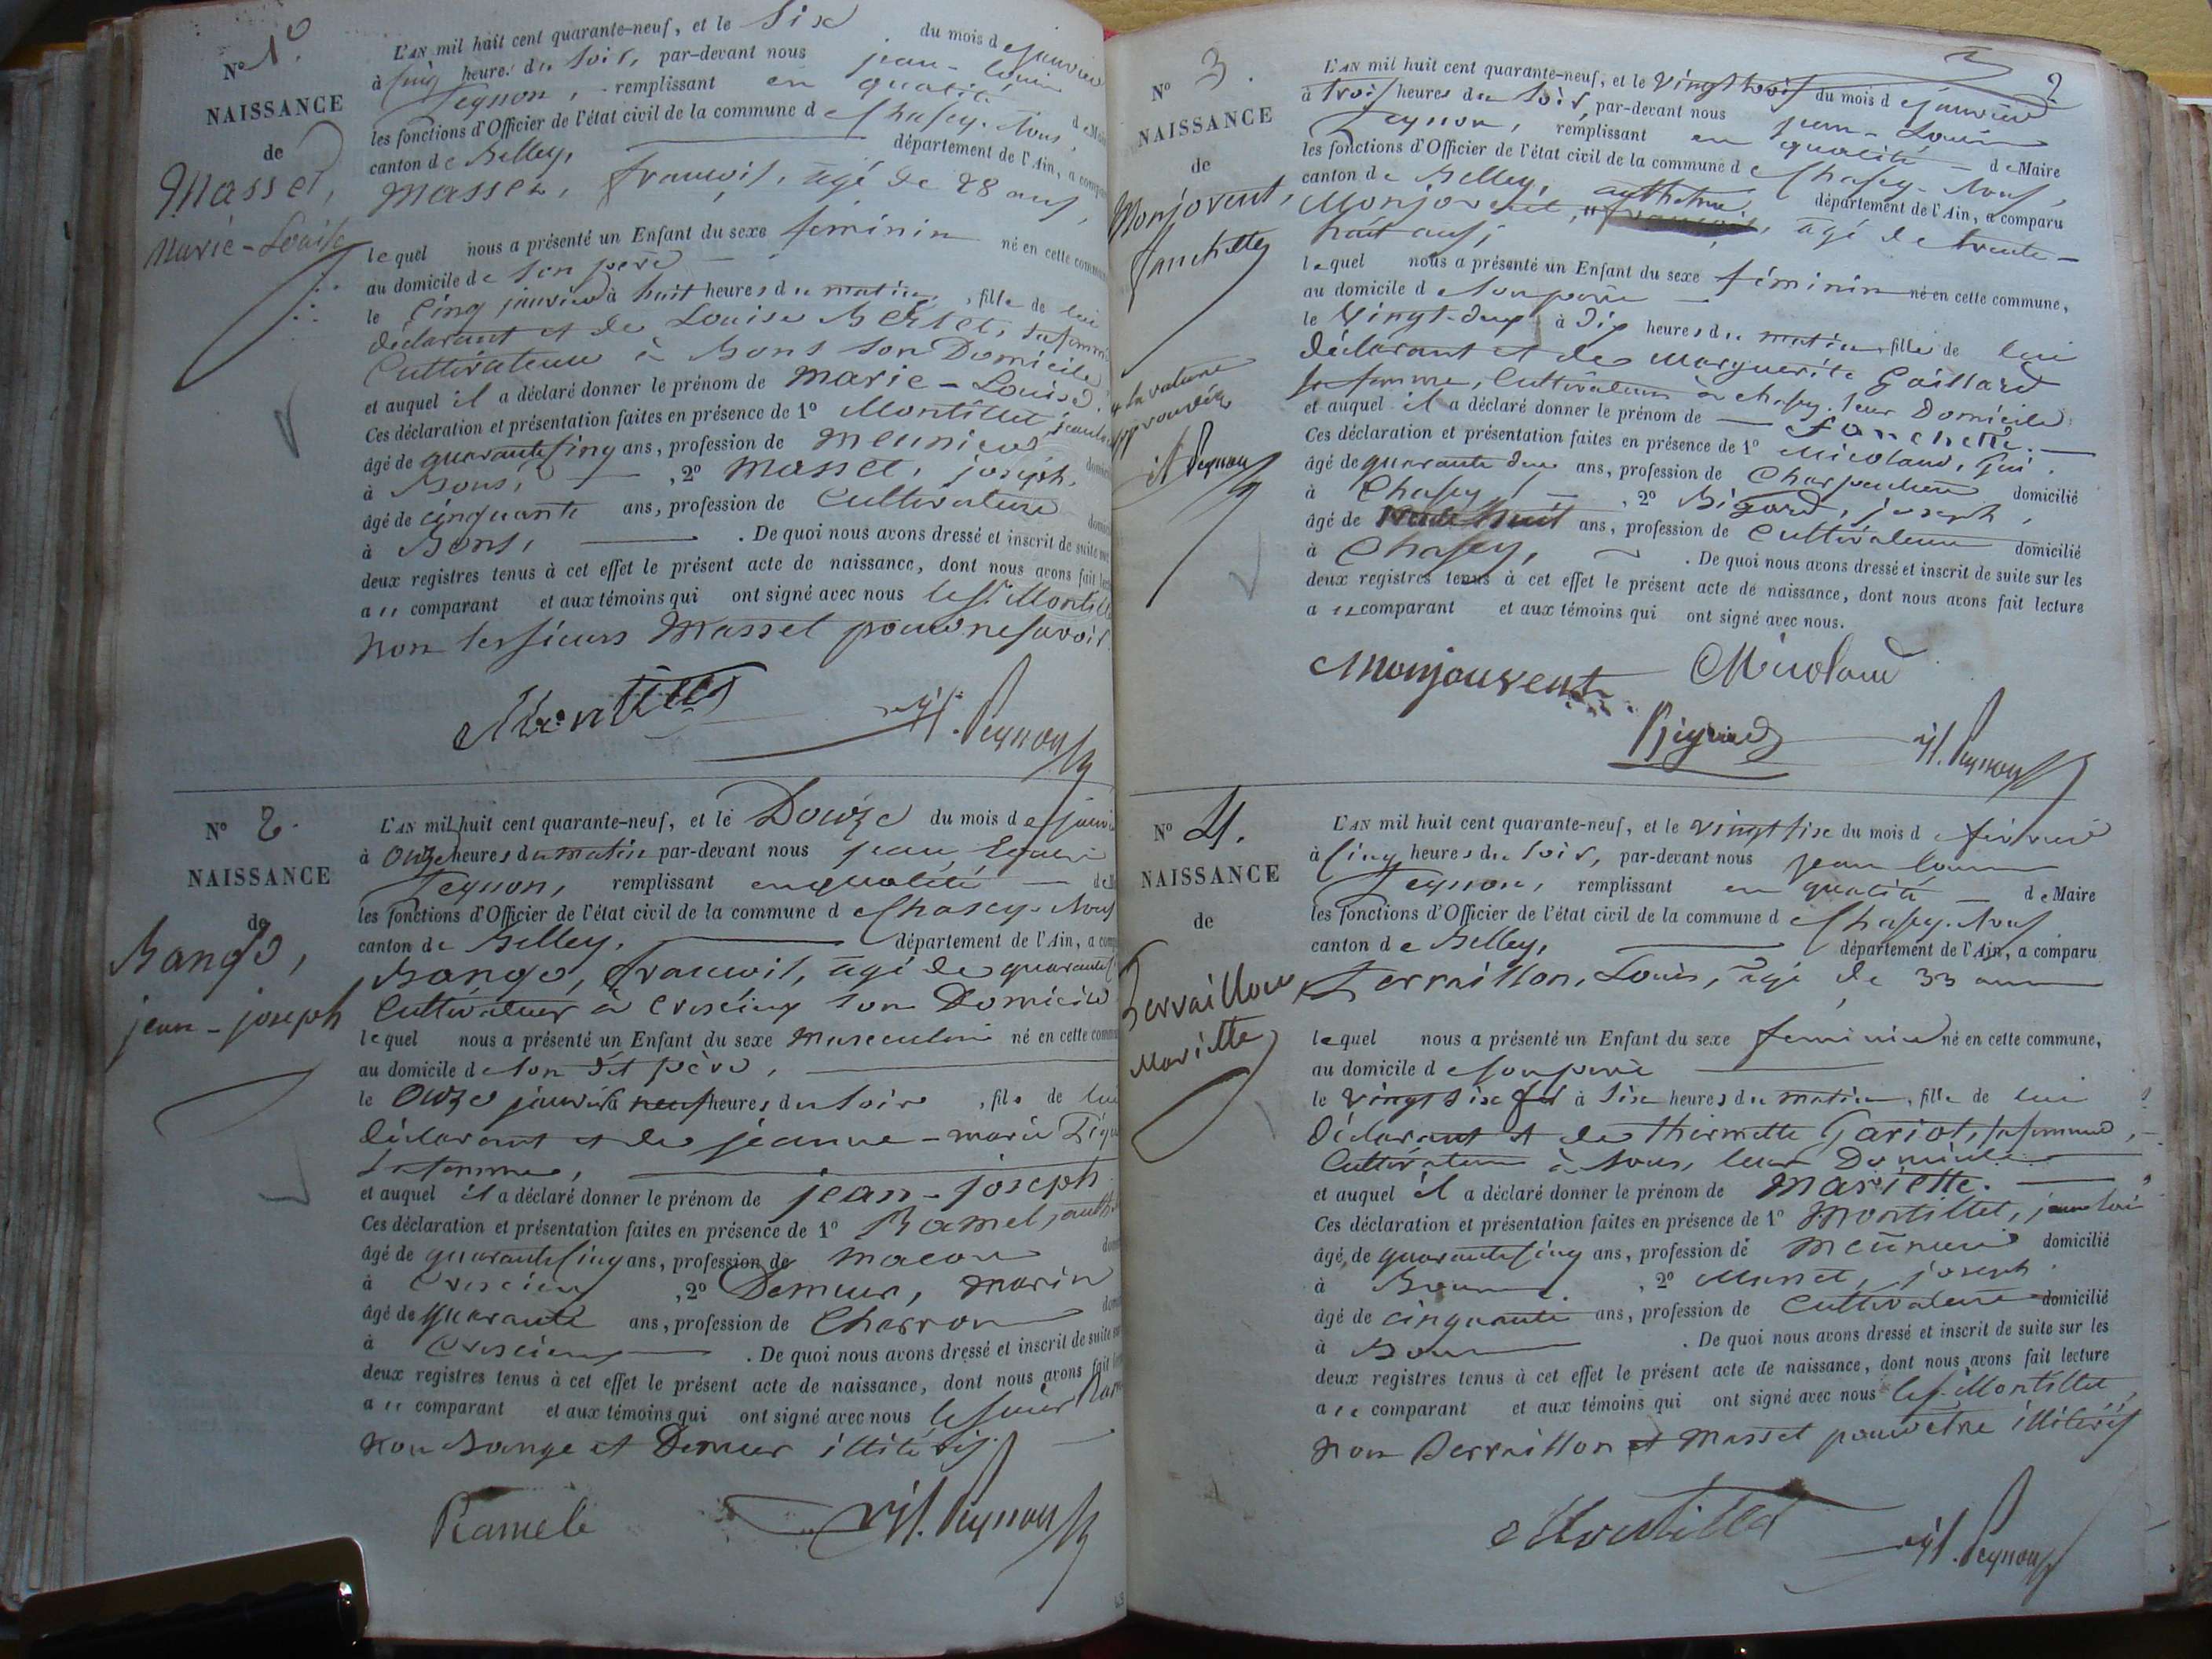 N° 1°
NAISSANCE
de
Massel,
Marie-Louise
L'AN mil huit cent quarante-neuf, et le Six du mois de janvier
à cinq heures du soir, par-devant nous jean-louis
Peysson, remplissant en qualité de Maire
les fonctions d'Officier de l'état civil de la commune de Chasey-Bons,
canton de Belley, département de l'Ain, a comparu
Massel, françois, âgé de 28 ans,
lequel nous a présenté un Enfant du sexe féminin né en cette commune
au domicile de son père
le cinq janvier à huit heures du matin, fille de lui
déclarant et de Louise Berlet, sa femme
Cultivateur à Bons son Domicile
et auquel il a déclaré donner le prénom de Marie-Louise.
Ces déclaration et présentation faites en présence de 1° Montillet,
âgé de quarante cinq ans, profession de Meunier
à Bons, 2° Massel, joseph,
âgé de cinquante ans, profession de Cultivateur
à Bons, . De quoi nous avons dressé et inscrit de suite
deux registres tenus à cet effet le présent acte de naissance, dont nous avons fait
au comparant et aux témoins qui ont signé avec nous le s. Montillet
non les sieurs Massel pour ne savoir.
Montillet
N° 2.
NAISSANCE
de
Bange,
jean-joseph
L'AN mil huit cent quarante-neuf, et le Douze du mois de janvier
à onze heures du matin par-devant nous jean Louis
Peysson, remplissant en qualité
les fonctions d'Officier de l'état civil de la commune de Chasey-Bons
canton de Belley, département de l'Ain, a
Bange, françois, âgé de quarante
Cultivateur à Cressieux son Domicile
lequel nous a présenté un Enfant du sexe Masculin né en cette
au domicile de son dit père,
le onze janvier à neuf heures du soir, fils de lui
déclarant et de jeanne-marie
sa femme,
et auquel il a déclaré donner le prénom de jean-joseph
Ces déclaration et présentation faites en présence de 1° Ramel,
âgé de quarante cinq ans, profession de maçon
à Cressieux, 2° Demeur, marin
âgé de quarante ans, profession de Charron
à Cressieux . De quoi nous avons dressé et inscrit de suite
deux registres tenus à cet effet le présent acte de naissance, dont nous avons fait
au comparant et aux témoins qui ont signé avec nous le sieur
non Bange et Demeur illitérés.
Ramel
N° 3.
NAISSANCE
de
Monjovent,
fanchette
L'AN mil huit cent quarante-neuf, et le vingt trois du mois de janvier
à trois heures du soir, par-devant nous jean-Louis
Peysson, remplissant en qualité de Maire
les fonctions d'Officier de l'état civil de la commune de Chasey-Bons,
canton de Belley, département de l'Ain, a comparu
Monjovent, anthelme, âgé de trente-
huit ans,
lequel nous a présenté un Enfant du sexe féminin né en cette commune,
au domicile de son père
le vingt-deux à dix heures du matin, fille de lui
déclarant et de Marguerite Gaillard
sa femme, Cultivateurs à chasey leur Domicile
et auquel il a déclaré donner le prénom de fanchette.
Ces déclaration et présentation faites en présence de 1° Micoland,
âgé de quarante deux ans, profession de Charpentier domicilié
à Chasey, 2° Bigard, joseph,
âgé de huit ans, profession de Cultivateur domicilié
à Chasey, . De quoi nous avons dressé et inscrit de suite sur les
deux registres tenus à cet effet le présent acte de naissance, dont nous avons fait lecture
au comparant et aux témoins qui ont signé avec nous.
Monjouvent Micoland
N° 4.
NAISSANCE
de
Derraillon
Mariette
L'AN mil huit cent quarante-neuf, et le vingt six du mois de février
à cinq heures du soir, par-devant nous jean louis
Peysson, remplissant en qualité de Maire
les fonctions d'Officier de l'état civil de la commune de Chasey-Bons
canton de Belley, département de l'Ain, a comparu
Derraillon, Louis, âgé de 33 ans
lequel nous a présenté un Enfant du sexe feminin né en cette commune,
au domicile de son père
le vingt six à six heures du matin, fille de lui
Déclarant et de thérmette Gariot, sa femme,
Cultivateurs à Bons, leur Domicile
et auquel il a déclaré donner le prénom de Mariette.
Ces déclaration et présentation faites en présence de 1° Montillet,
âgé de quarante cinq ans, profession de Meunier domicilié
à Bons. 2° Massel, joseph.
âgé de cinquante ans, profession de Cultivateur domicilié
à Bons . De quoi nous avons dressé et inscrit de suite sur les
deux registres tenus à cet effet le présent acte de naissance, dont nous avons fait lecture
au comparant et aux témoins qui ont signé avec nous le s. Montillet,
non Derraillon et Massel pour être illitérés
Montillet